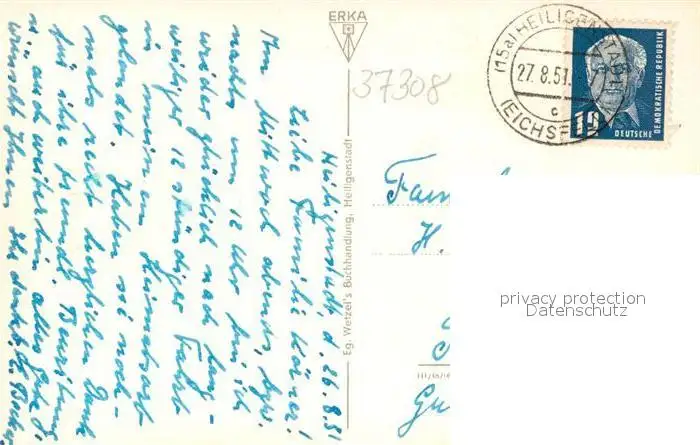 ERKA
37308
(15a) HEILIGENSTADT
27.8.51
c
(EICHSF
DEUTSCHE
DEMOKRATISCHE REPUBLIK
Eg. Wetzel's Buchhandlung, Heiligenstadt
Heiligenstadt, d. 26.8.51
Liebe Familie Körner!
Am Mittwoch abends, bzw.
nachts um 12 Uhr bin ich
wieder glücklich nach lang-
weiliger 12 stündiger Fahrt
in meinem Heimatort
gelandet. Haben Sie noch-
mals recht herzlichen Dank
für Ihre freundl.
auch weiterhin alles Gute
wünscht Ihnen
Fam
H.
privacy protection
Datenschutz